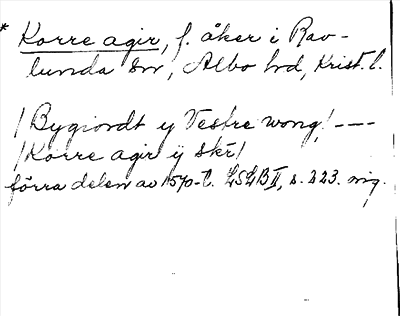 * Korre agir, f. åker i Rav-
lunda sn, Albo hd, Krist. l.
/Bygiordt y Vestre wong! ---
/Korre agir ÿ skr/
förra delen av 1570-t. LSLB II, s. 223. mig.